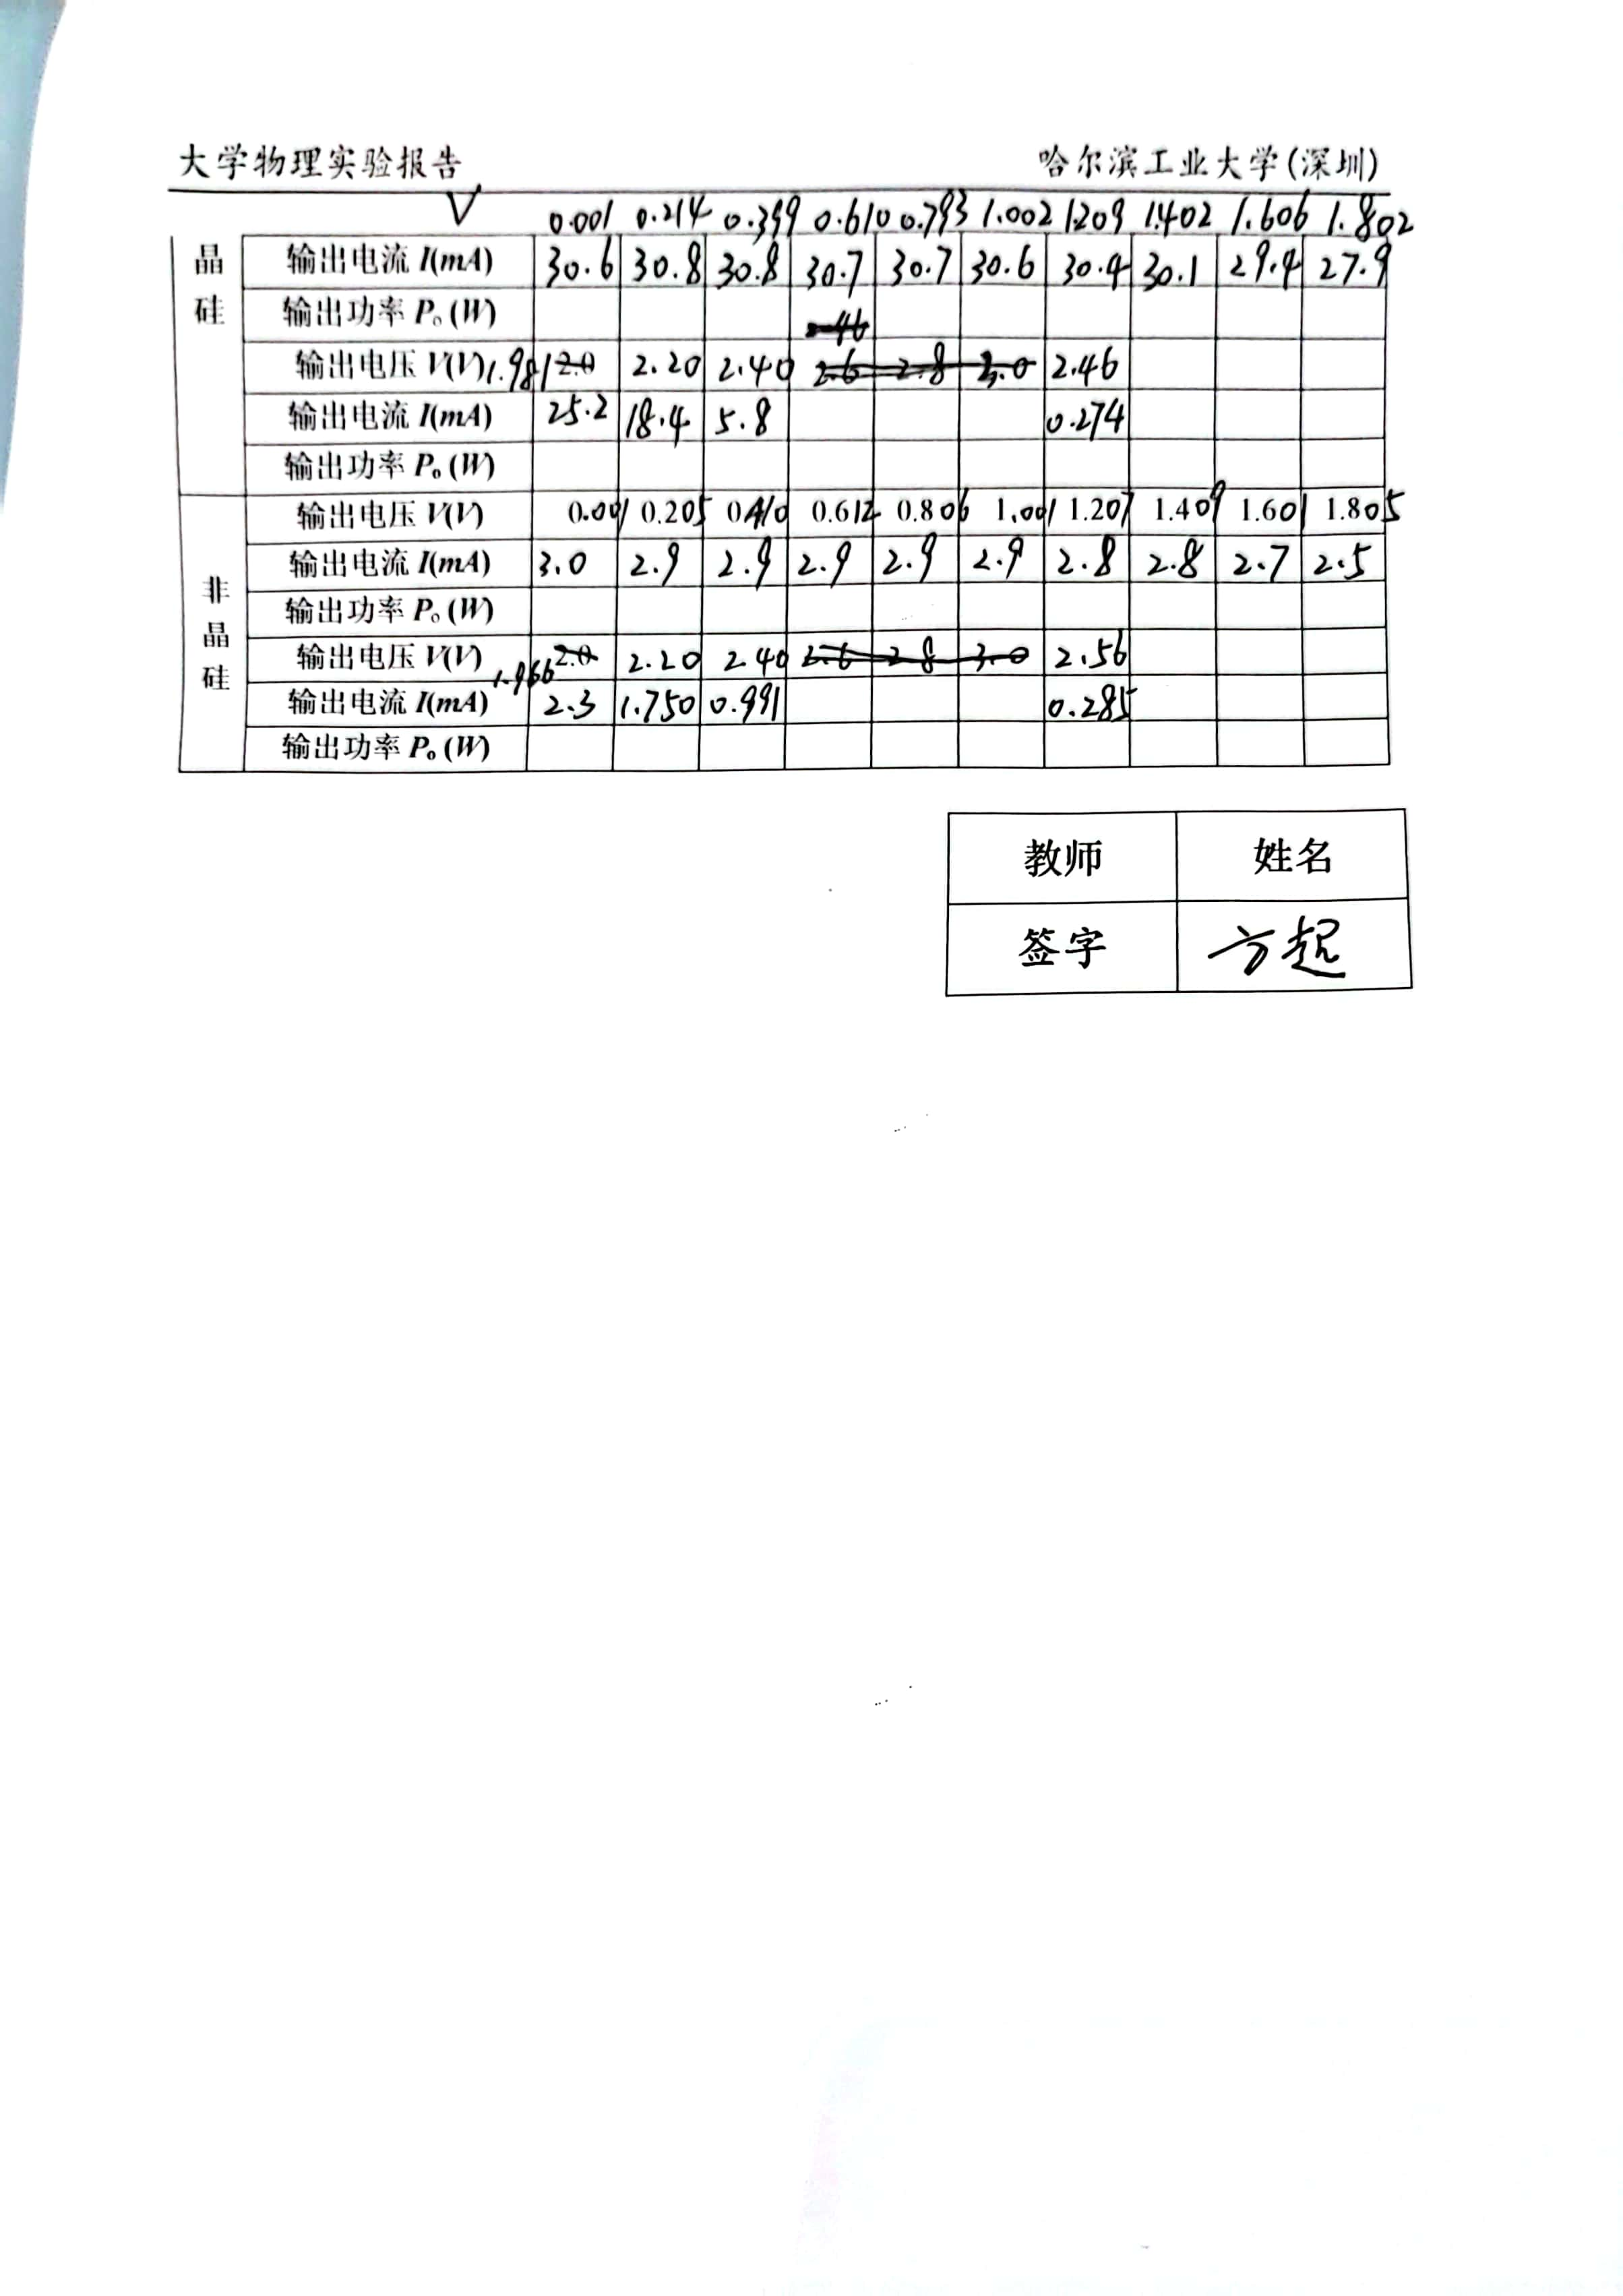 大学物理实验报告 哈尔滨工业大学(深圳)
V 0.001 0.214 0.399 0.610 0.793 1.002 1.209 1.402 1.606 1.802
晶硅
输出电流 I(mA) 30.6 30.8 30.8 30.7 30.7 30.6 30.4 30.1 29.4 27.9
输出功率 Po (W)
输出电压 V(V) 1.981 2.0 2.20 2.40 2.6 2.8 3.0 2.46
输出电流 I(mA) 25.2 18.4 5.8 0.274
输出功率 Po (W)
非晶硅
输出电压 V(V) 0.001 0.205 0.410 0.612 0.806 1.001 1.207 1.409 1.601 1.805
输出电流 I(mA) 3.0 2.9 2.9 2.9 2.9 2.9 2.8 2.8 2.7 2.5
输出功率 Po (W)
输出电压 V(V) 1.966 2.0 2.20 2.40 2.6 2.8 3.0 2.56
输出电流 I(mA) 2.3 1.750 0.991 0.285
输出功率 Po (W)
教师 姓名
签字 方起